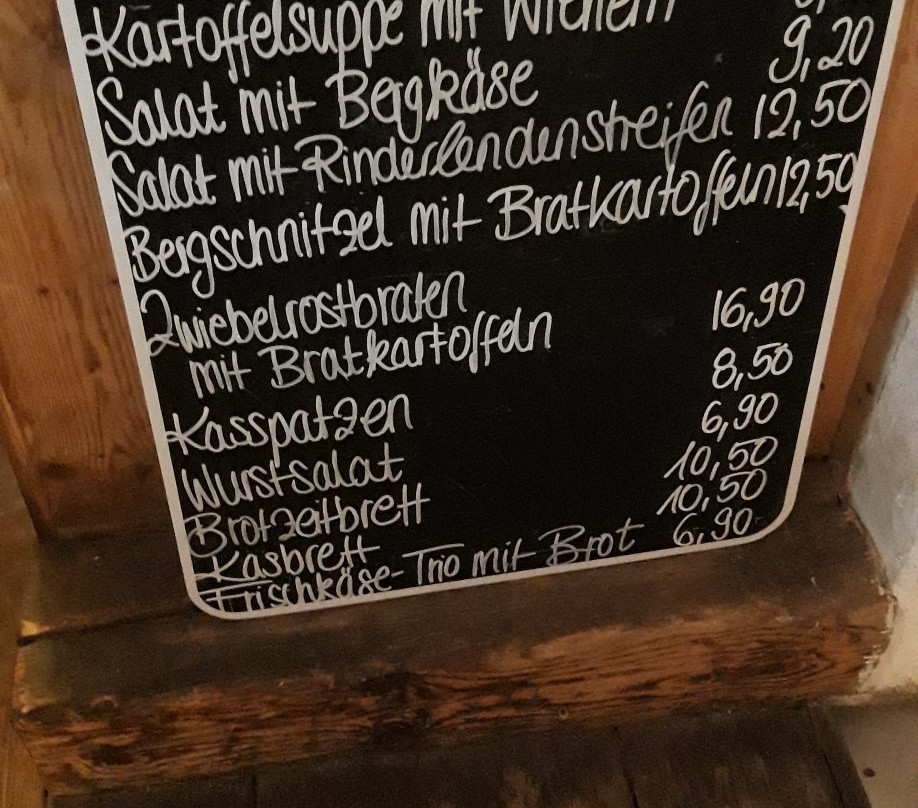 Kartoffelsuppe mit Wienern
Salat mit Bergkäse 9,20
Salat mit Rinderlendenstreifen 12,50
Bergschnitzel mit Bratkartoffeln 12,50
Zwiebelrostbraten
mit Bratkartoffeln 16,90
Kasspatzen 8,50
Wurstsalat 6,90
Brotzeitbrett 10,50
Kasbrett 10,50
Frischkäse-Trio mit Brot 6,90